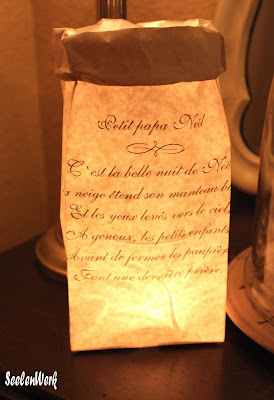 Petit papa Noël
C'est la belle nuit de Noë
a neige étend son manteau bl
Et les yeux levés vers le ciel,
A genoux, les petits enfants,
Avant de fermer les paupière
Font une dernière prière.
SeelenWerk